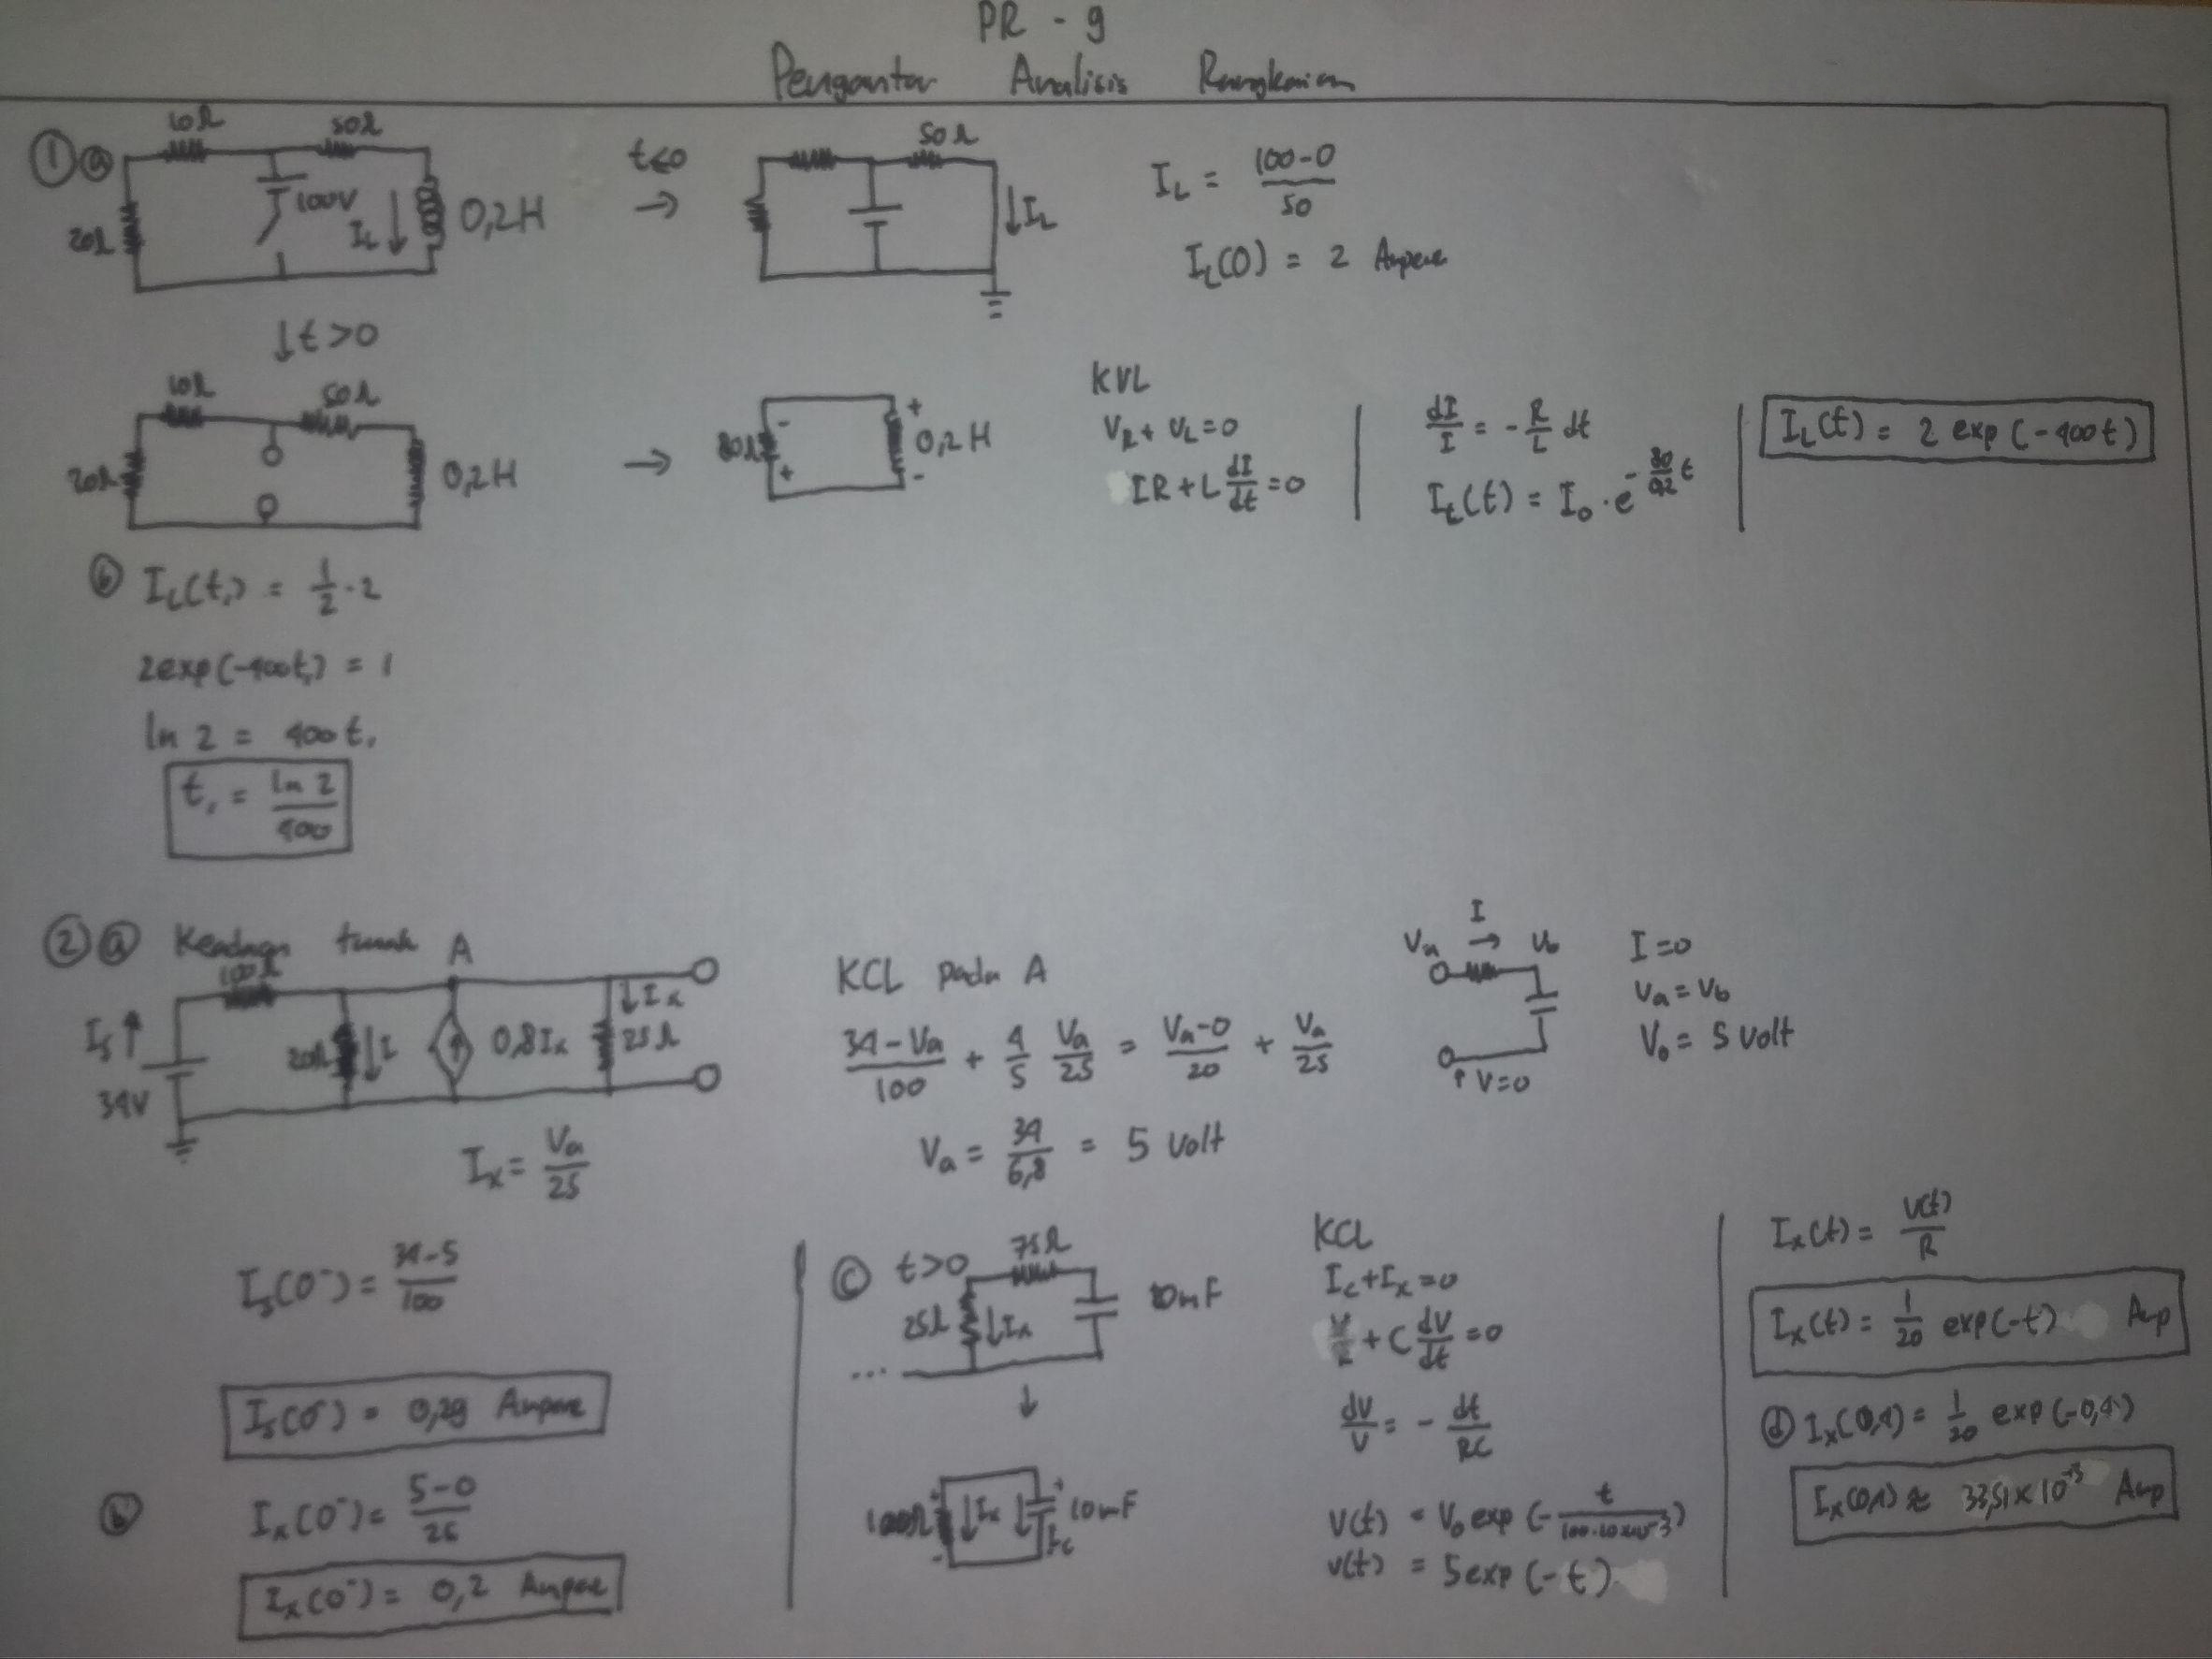 PR - 9
Pengantar Analisis Rangkaian
① ⓐ 10Ω 50Ω 20Ω 100V I_L ↓ 0,2H
t<0 →
50Ω ↓I_L
I_L = (100-0)/50
I_L(0) = 2 Ampere
↓ t>0
10Ω 50Ω 20Ω 0,2H
→ 80Ω - + + - 0,2H
KVL
V_R + V_L = 0
IR + L dI/dt = 0
dI/I = - R/L dt
I_L(t) = I_0 · e^(- 80/0,2 t)
I_L(t) = 2 exp(-400t)
ⓑ I_L(t₁) = 1/2 · 2
2exp(-400t₁) = 1
ln 2 = 400 t₁
t₁ = ln 2/400
② ⓐ Keadaan tunak A
100Ω I_s ↑ 34V 20Ω ↓I 0,8I_x ↓I_x 25Ω
I_x = Va/25
KCL pada A
(34-Va)/100 + 4/5 Va/25 = (Va-0)/20 + Va/25
Va = 34/6,8 = 5 Volt
Va I → Vb
↑ V=0
I = 0
Va = Vb
V_0 = 5 Volt
I_s(0⁻) = (34-5)/100
I_s(0⁻) = 0,29 Ampere
ⓑ I_x(0⁻) = (5-0)/25
I_x(0⁻) = 0,2 Ampere
ⓒ t>0 75Ω 25Ω ↓I_x 10mF
...
↓
100Ω + - ↓I_x ↓I_c + 10mF
KCL
I_c + I_x = 0
V/R + C dV/dt = 0
dV/V = - dt/RC
V(t) = V_0 exp(- t/(100·10×10⁻³))
V(t) = 5 exp(-t)
I_x(t) = V(t)/R
I_x(t) = 1/20 exp(-t) Amp
ⓓ I_x(0,4) = 1/20 exp(-0,4)
I_x(0,4) ≈ 33,51×10⁻³ Amp